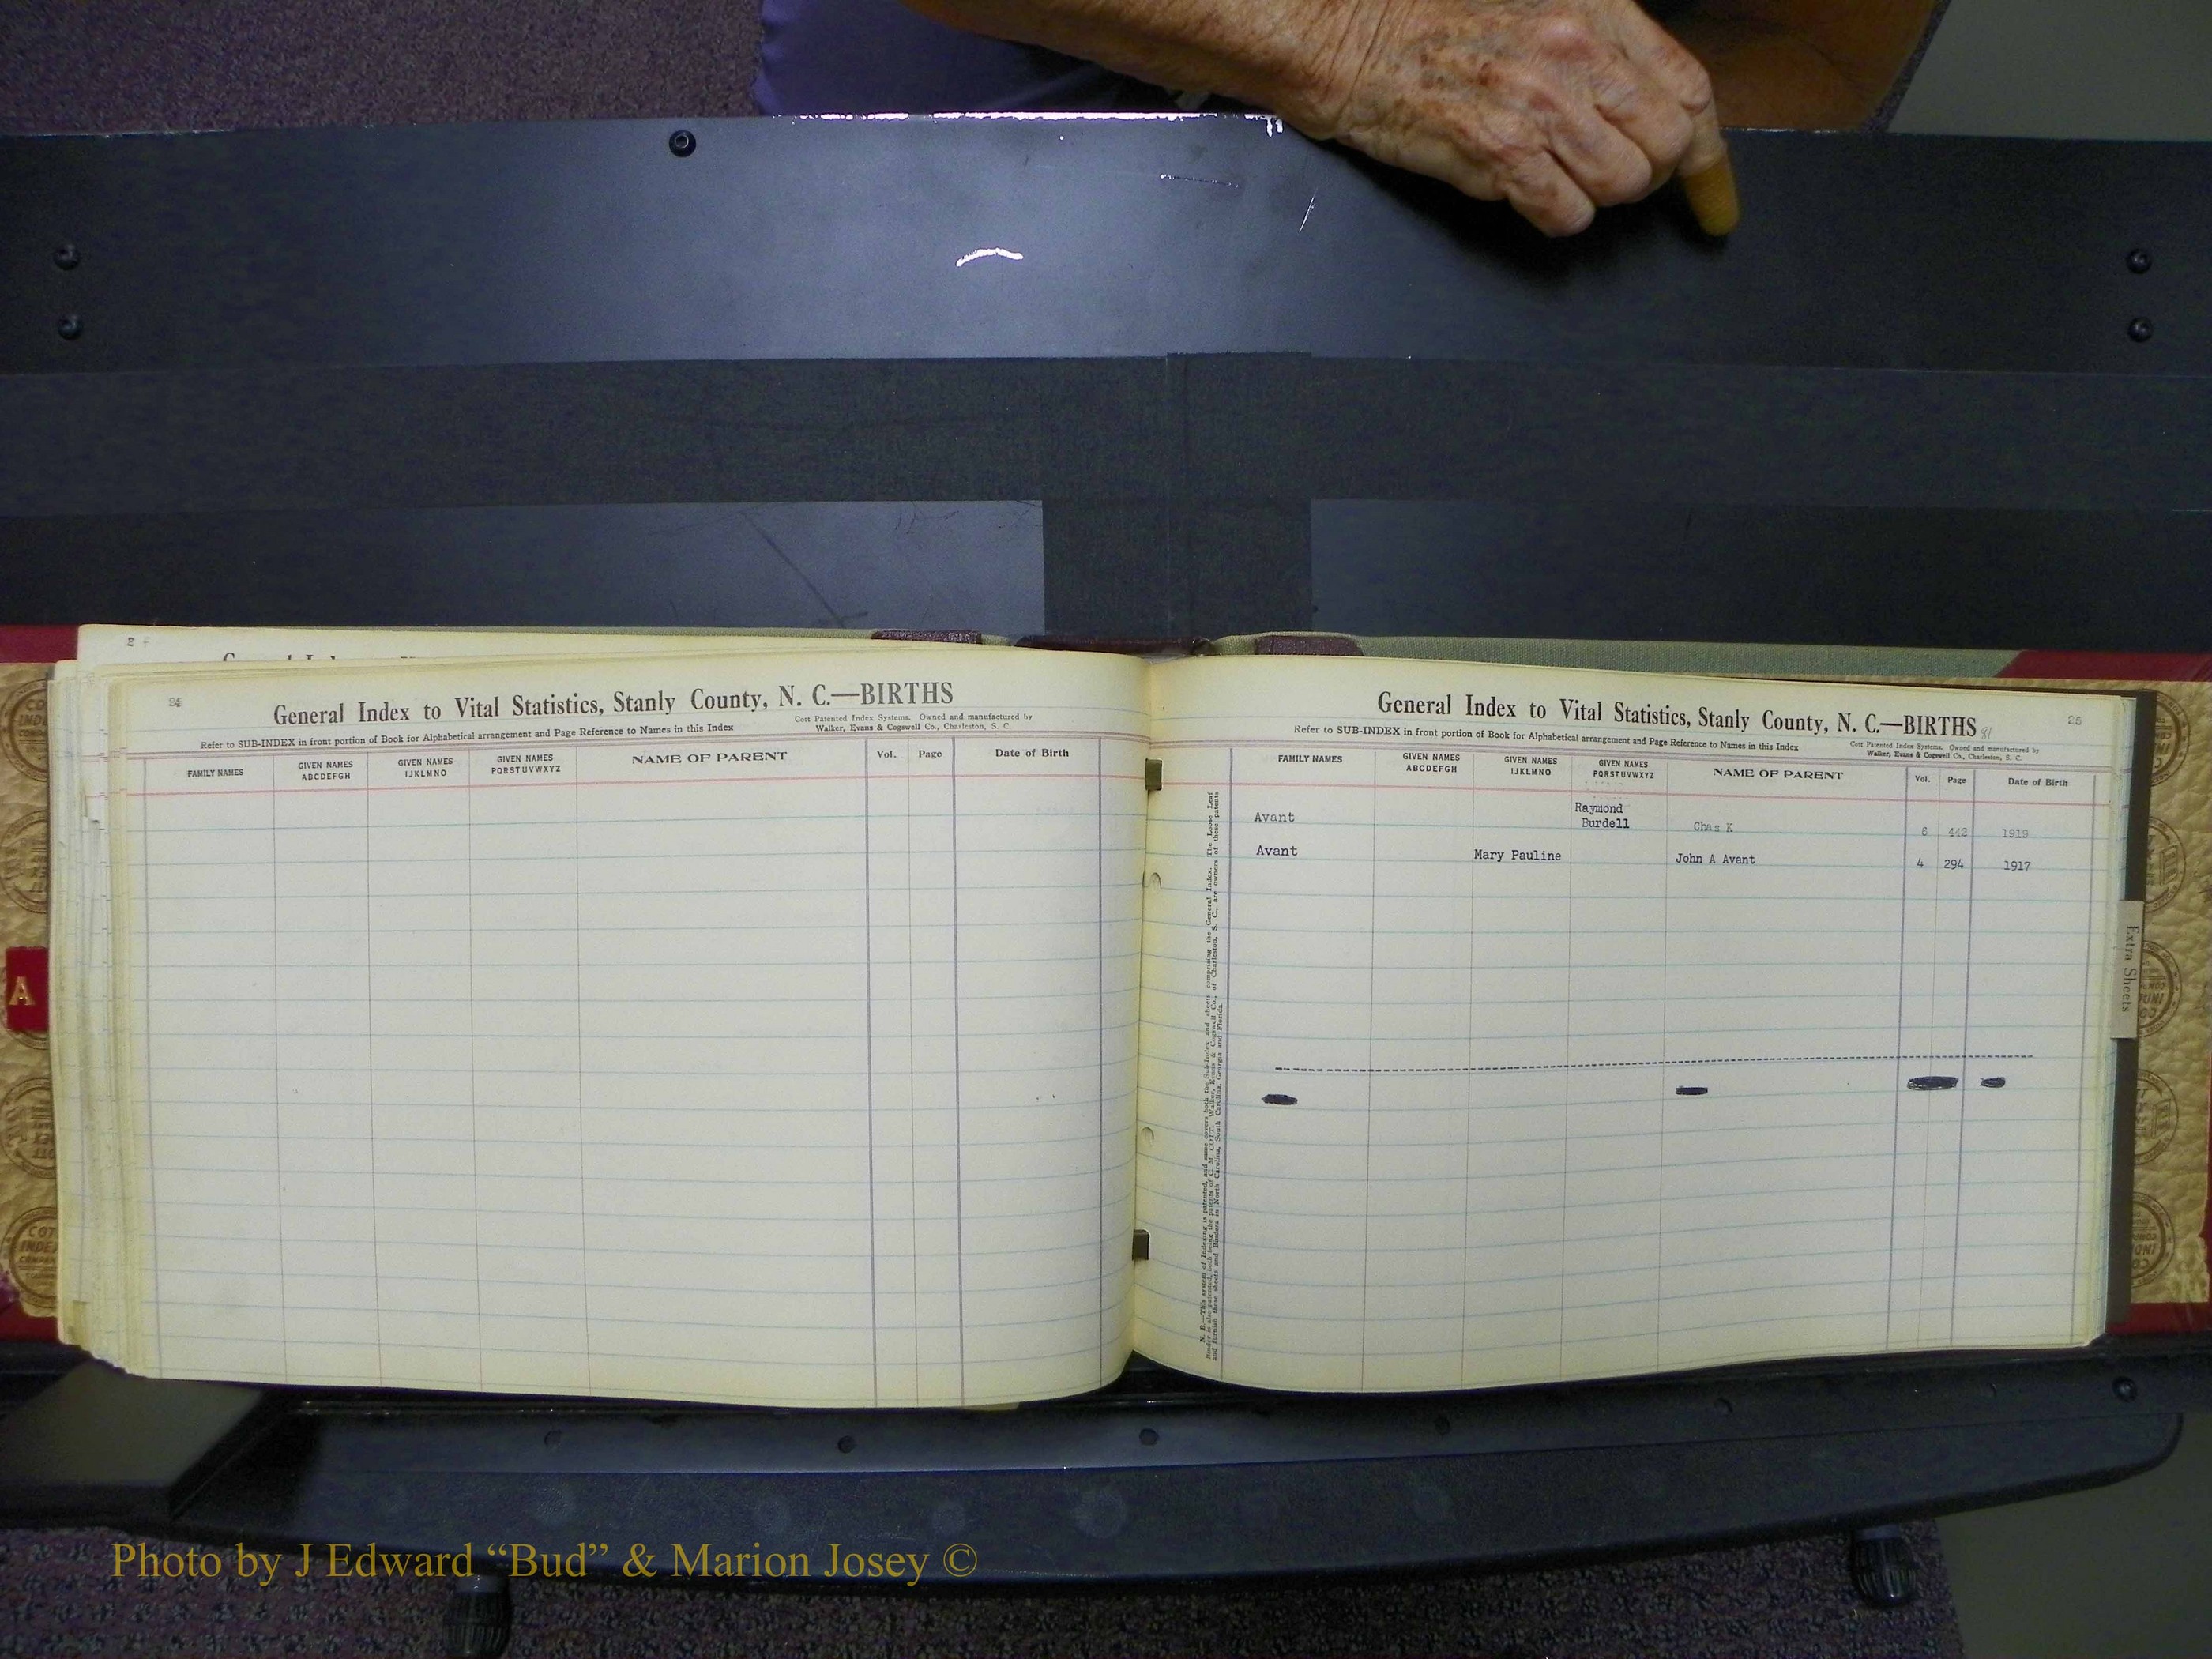 24
General Index to Vital Statistics, Stanly County, N. C.—BIRTHS
Refer to SUB-INDEX in front portion of Book for Alphabetical arrangement and Page Reference to Names in this Index
Cott Patented Index Systems. Owned and manufactured by
Walker, Evans & Cogswell Co., Charleston, S. C.
FAMILY NAMES GIVEN NAMES ABCDEFGH GIVEN NAMES IJKLMNO GIVEN NAMES PQRSTUVWXYZ NAME OF PARENT Vol. Page Date of Birth
General Index to Vital Statistics, Stanly County, N. C.—BIRTHS
Refer to SUB-INDEX in front portion of Book for Alphabetical arrangement and Page Reference to Names in this Index
Cott Patented Index Systems. Owned and manufactured by
Walker, Evans & Cogswell Co., Charleston, S. C.
FAMILY NAMES GIVEN NAMES ABCDEFGH GIVEN NAMES IJKLMNO GIVEN NAMES PQRSTUVWXYZ NAME OF PARENT Vol. Page Date of Birth
Avant Raymond
Burdell Chas K 6 442 1919
Avant Mary Pauline John A Avant 4 294 1917
N. B.—This system of Indexing is patented, and same covers both the Sub-Index and sheets comprising the General Index. The Loose Leaf
Binder is also patented, both being the patents of C. M. COTT. Walker, Evans & Cogswell Co., of Charleston, S. C., are owners of these patents
and furnish these sheets and Binders in North Carolina, South Carolina, Georgia and Florida.
Extra Sheets
A
Photo by J Edward “Bud” & Marion Josey ©